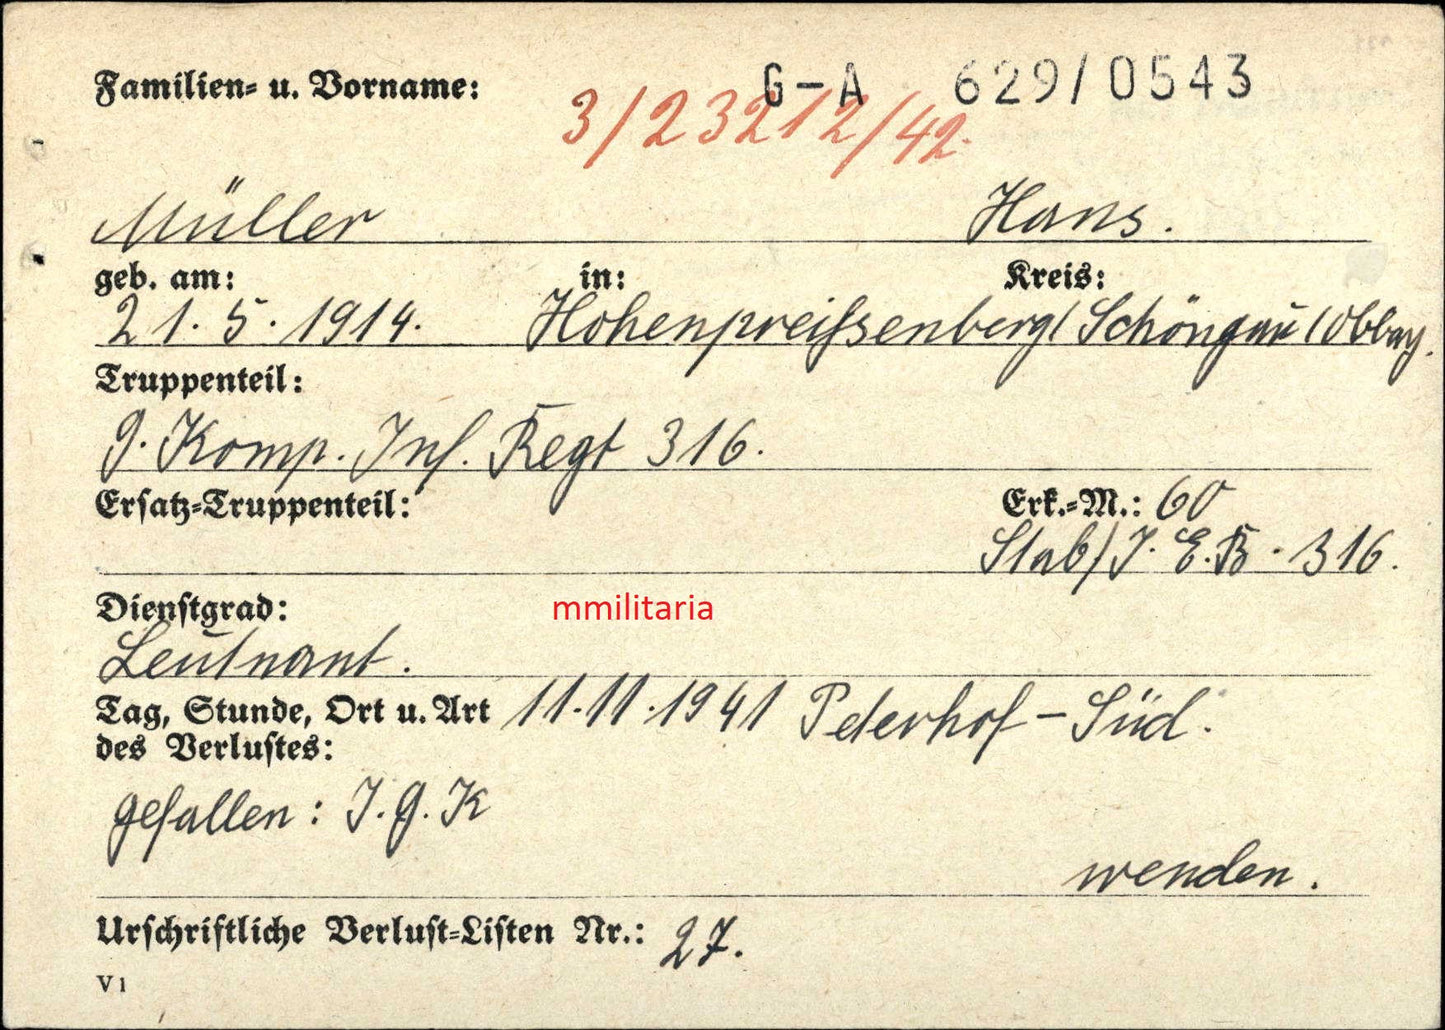 G-A 629/0543
Familien- u. Vorname:
3/23212/42.
Müller Hans.
geb. am: in: Kreis:
21. 5. 1914. Hohenpreißsenberg/ Schöngau (Obbay.
Truppenteil:
9. Komp. Inf. Regt 316.
Ersatz-Truppenteil: Erk.-M.: 60
Stab/J. E. B. 316.
Dienstgrad:
mmilitaria
Leutnant.
Tag, Stunde, Ort u. Art 11.11.1941 Peterhof - Süd.
des Verlustes:
gefallen: J. G. K
wenden.
Urschriftliche Verlust-Listen Nr.: 27.
V 1